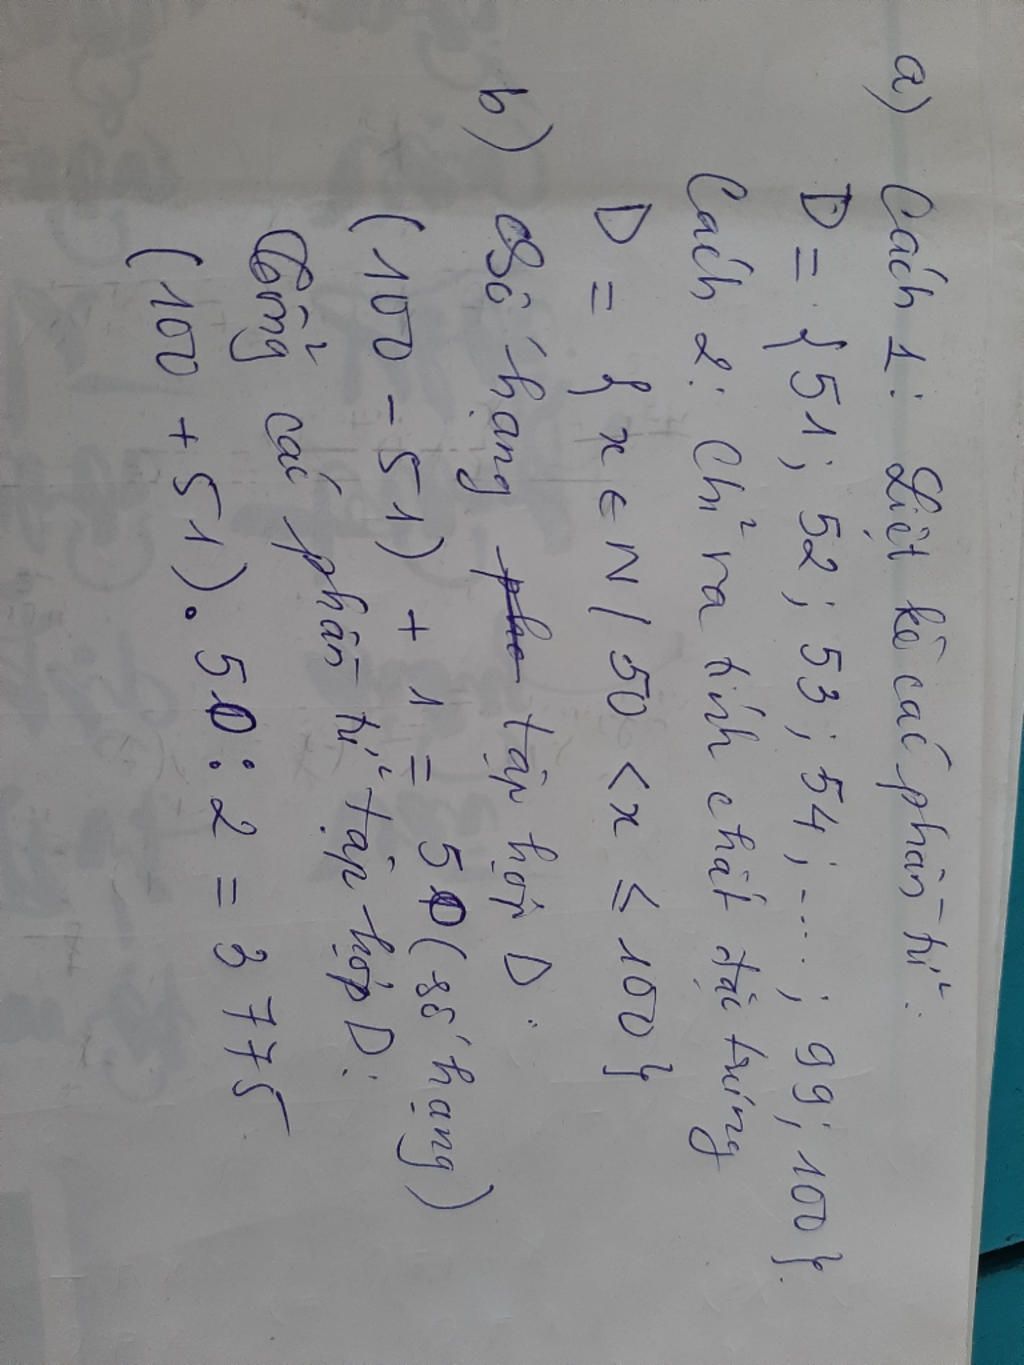 a) Cách 1: Liệt kê các phần tử:
D = { 51; 52; 53; 54; ...; 99; 100}.
Cách 2: Chỉ ra tính chất đặc trưng
D = { x ∈ N / 50 < x ≤ 100}
b) Số hạng tập hợp D.
(100 - 51) + 1 = 50 (số hạng)
Tổng các phần tử tập hợp D:
(100 + 51). 50 : 2 = 3 775